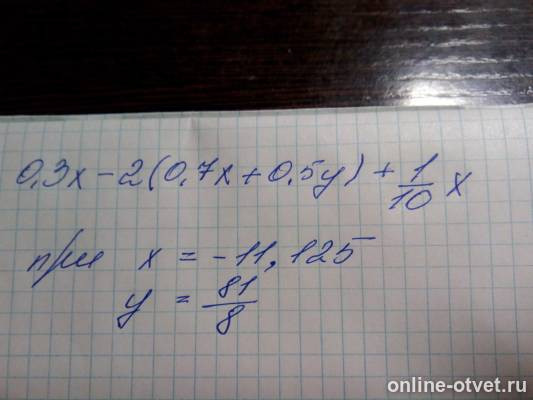 0,3x - 2(0,7x + 0,5y) + 1/10 x
при x = -11,125
y = 81/8
online-otvet.ru